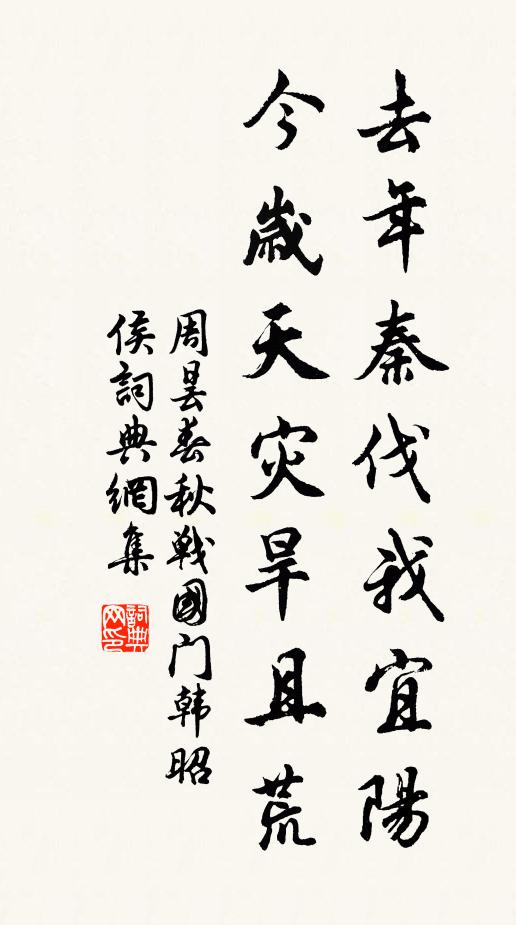 去年秦伐我宜陽
今歲天灾旱且荒
周昙春秋戰國门韩昭
侯詞典網集
詞典网印